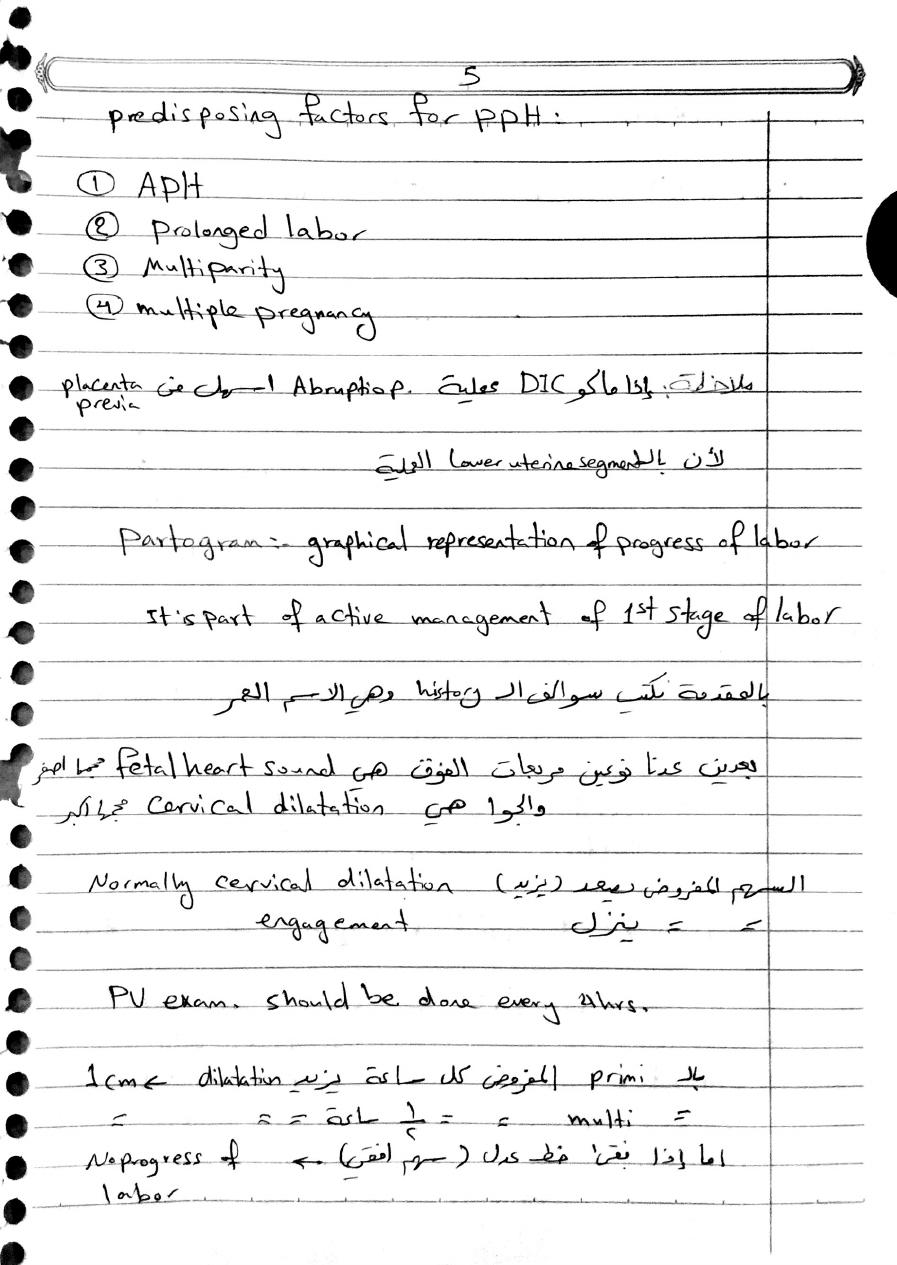 5
predisposing factors for PPH:
① APH
② Prolonged labor
③ Multiparity
④ multiple pregnancy
ملاحظة: إذا ماكو DIC عملية Abruptio p. اسهل من placenta previa
لأن بالـ lower uterine segment العملية
Partogram:- graphical representation of progress of labor
It's part of active management of 1st stage of labor
بالمقدمة نكتب سوالف الـ history وهي الاسم العمر
بعدين عدنا نوعين مربعات الفوق هي fetal heart sound حجمها اصغر
والجوا هي cervical dilatation حجمها اكبر
السهم المفروض يصعد (يزيد) Normally cervical dilatation
= = ينزل engagement
PV exam. should be done every 4hrs.
بالـ primi المفروض كل ساعة يزيد dilatation ← 1cm
= multi = = ١/٢ ساعة = = =
اما إذا بقى خط عدل (سهم افقي) ← No progress of
labor